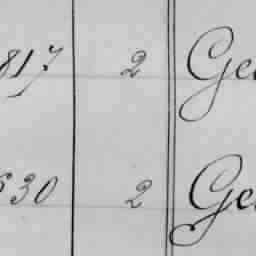 817 2 Ge
630 2 Ge